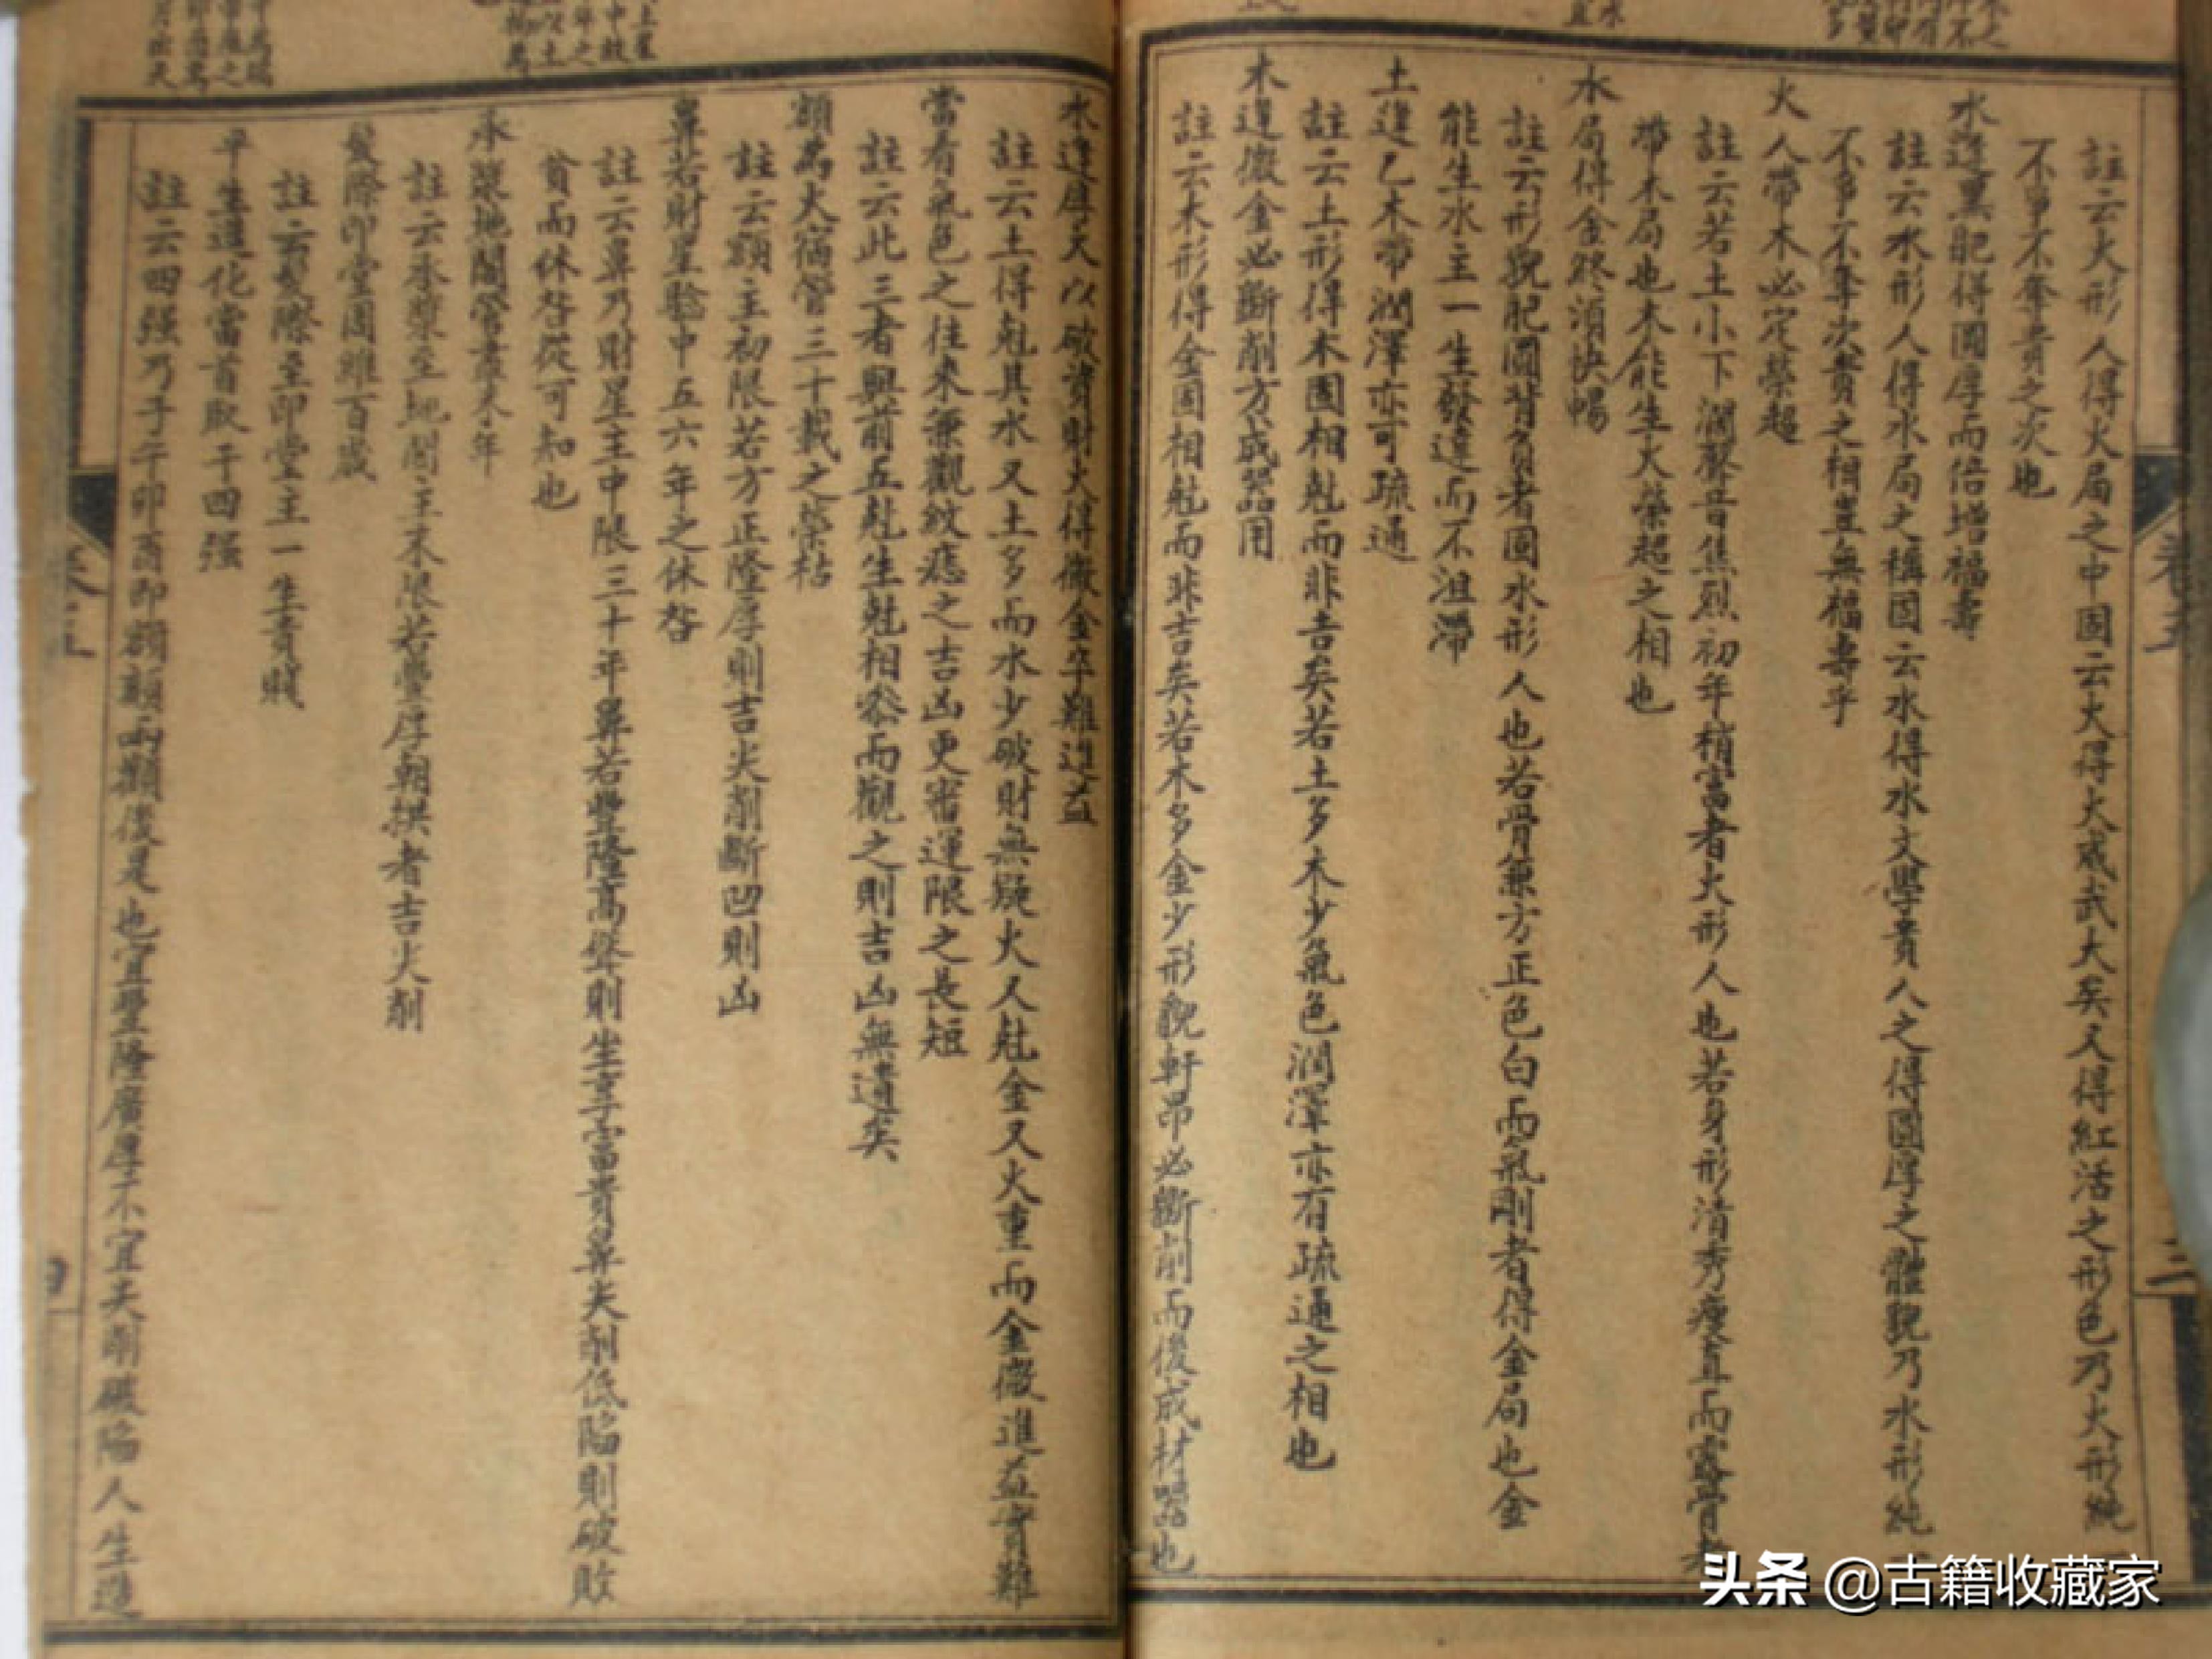 註云火形人得火局之中固云火得火威武大矣又得紅活之形色乃火形純
不爭不奪貴之次也
水逢黑肥得圓厚而倍增福壽
註云水形人得水局之稱固云水得水文學貴人之得圓厚之體貌乃水形純
不爭不奪次貴之相豈無福壽乎
火人帶木必定榮超
註云若土小下濶聲音焦烈初年稍富者火形人也若身形清秀瘦直而露骨者
帶木局也木能生火榮超之相也
水局得金終須快暢
註云形貌肥圓背負者固水形人也若骨兼方正色白而氣剛者得金局也金
能生水主一生發達而不沮滯
土逢乙木帶潤澤亦可疏通
註云土形得木固相尅而非吉矣若土多木少氣色潤澤亦有疏通之相也
木逢微金必斲削方成器用
註云木形得金固相尅而非吉矣若木多金少形貌軒昂必斲削而後成材器也
水逢厚天以破資財火得微金卒難進益
註云土得尅其水又土多而水少破財無疑火又尅金又火重而金微進益實難
當看氣色之往來兼觀紋痣之吉凶更審運限之長短
註云此三者與前五尅生尅相叅而觀之則吉凶無遺矣
額為火宿管三十載之榮枯
註云額主初限若方正隆厚則吉尖削斷凹則凶
鼻若財星驗中五六年之休咎
註云鼻乃財星主中限三十年鼻若豐隆高聳則坐享富貴鼻尖削低陷則破敗
貧而休咎從可知也
承漿地閣管盡末年
註云承漿至地閣主末限若豐厚朝拱者吉尖削
髮際印堂周維百歲
註云髮際至印堂主一生貴賤
平生造化當首取于四强
註云四强乃子午卯酉即額頦兩顴後是也宜豐隆廣厚不宜尖削破陷人生造
卷五
三
头条 @古籍收藏家